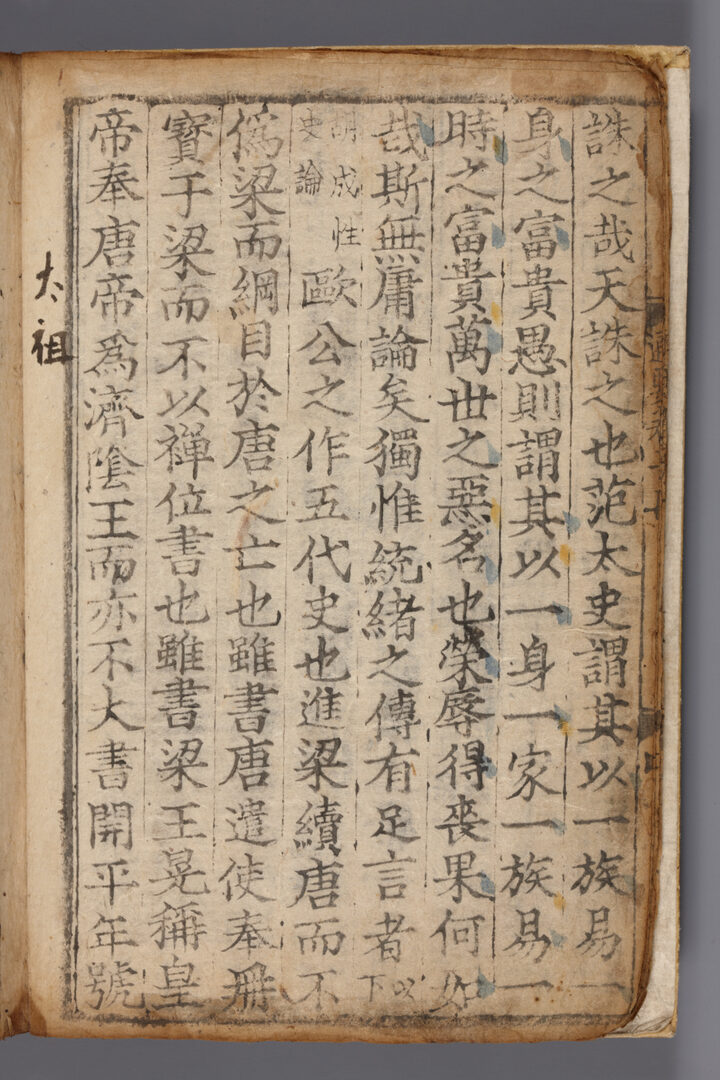 誅之哉天誅之也范太史謂其以一族易一
身之富貴愚則謂其以一身一家一族易一
時之富貴萬世之惡名也榮辱得喪果何如
哉斯無庸論矣獨惟統緒之傳有足言者以下
胡成性史論歐公之作五代史也進梁續唐而不
僞梁而綱目於唐之亡也雖書唐遣使奉冊
寶于梁而不以禪位書也雖書梁王晃稱皇
帝奉唐帝爲濟陰王而亦不大書開平年號
太祖